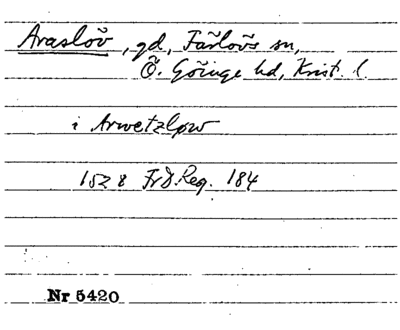 Araslöv, gd, Färlövs sn,
Ö. Göinge hd, Krist. l.
i Arwetzlow
1528 FrI:s Reg. 184
Nr 5420